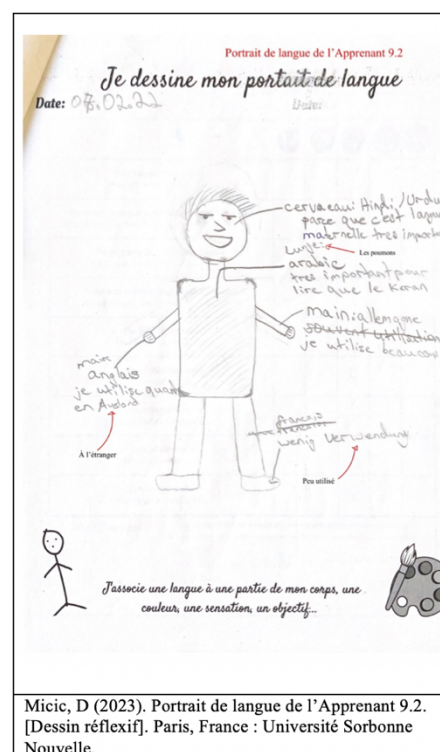 Portrait de langue de l'Apprenant 9.2
Je dessine mon portait de langue
Date: 07.02.22
Date:
cerveau: Hindi / Urdu
parce que c'est langue
maternelle tres importa
Lunge:
Les poumons
arabic
tres important pour
lire que le Koran
main: allemagne
souvent utilisation
je utilise beaucou
main
anglais
je utilise quand
en Ausland
À l'étranger
francais
wenig Verwendung
Peu utilisé
J'associe une langue à une partie de mon corps, une
couleur, une sensation, un objectif...
Micic, D (2023). Portrait de langue de l'Apprenant 9.2.
[Dessin réflexif]. Paris, France : Université Sorbonne
Nouvelle.